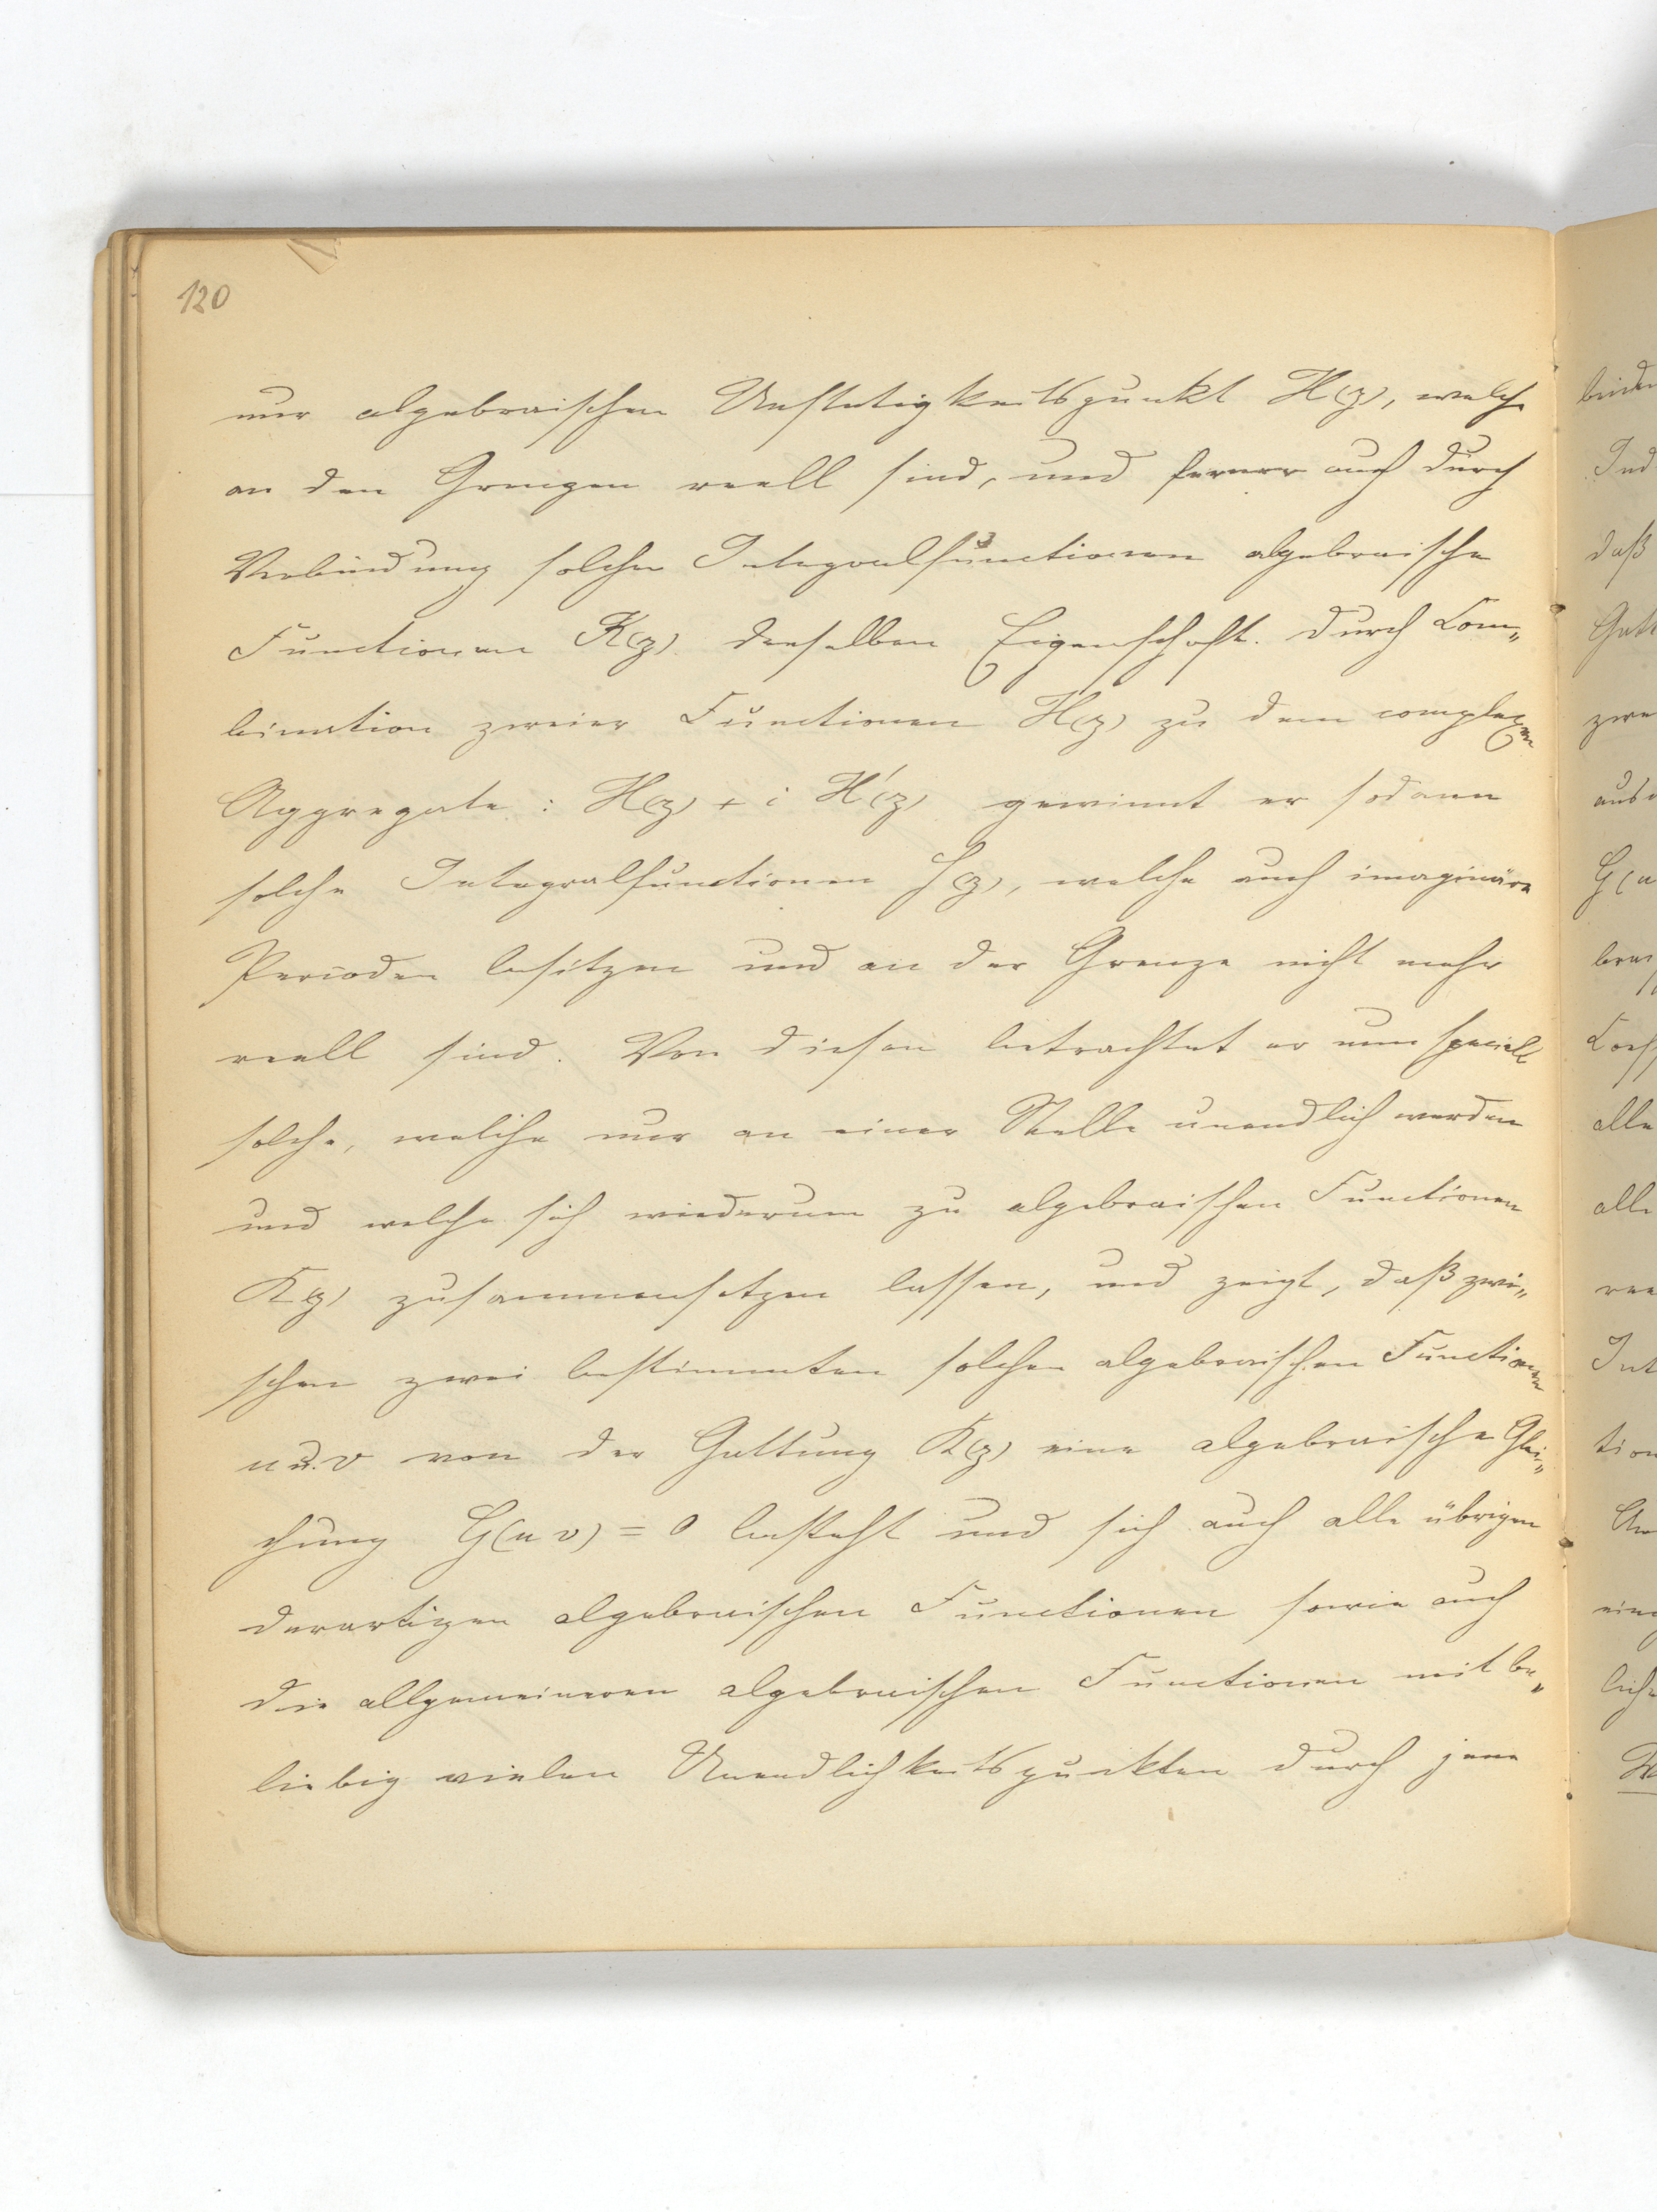 120
nur algebraischen Unstetigkeitspunkt H(z), welche
an den Grenzen reell sind, und ferner auch durch
Verbindung solcher Integralfunctionen algebraische
Functionen K(z) derselben Eigenschaft. Durch Com„
bination zweier Functionen H(z) zu dem complexen
Aggregate: H(z) + i H'(z) gewinnt er sodann
solche Integralfunctionen J(z), welche auch imaginäre
Perioden besitzen und an der Grenze nicht mehr
reell sind. Von diesen betrachtet er nun speciell
solche, welche nur an einer Stelle unendlich werden
und welche sich wiederum zu algebraischen Functionen
K(z) zusammensetzen lassen, und zeigt, daß zwi„
schen zwei bestimmten solchen algebraischen Functionen
u u. v von der Gattung K(z) eine algebraische Glei„
chung G(u v) = 0 besteht und sich auch alle übrigen
derartigen algebraischen Functionen sowie auch
die allgemeineren algebraischen Functionen mit be„
liebig vielen Unendlichkeitspunkten durch jene
daß
zwe
G(u
alle
alle
Int
tion